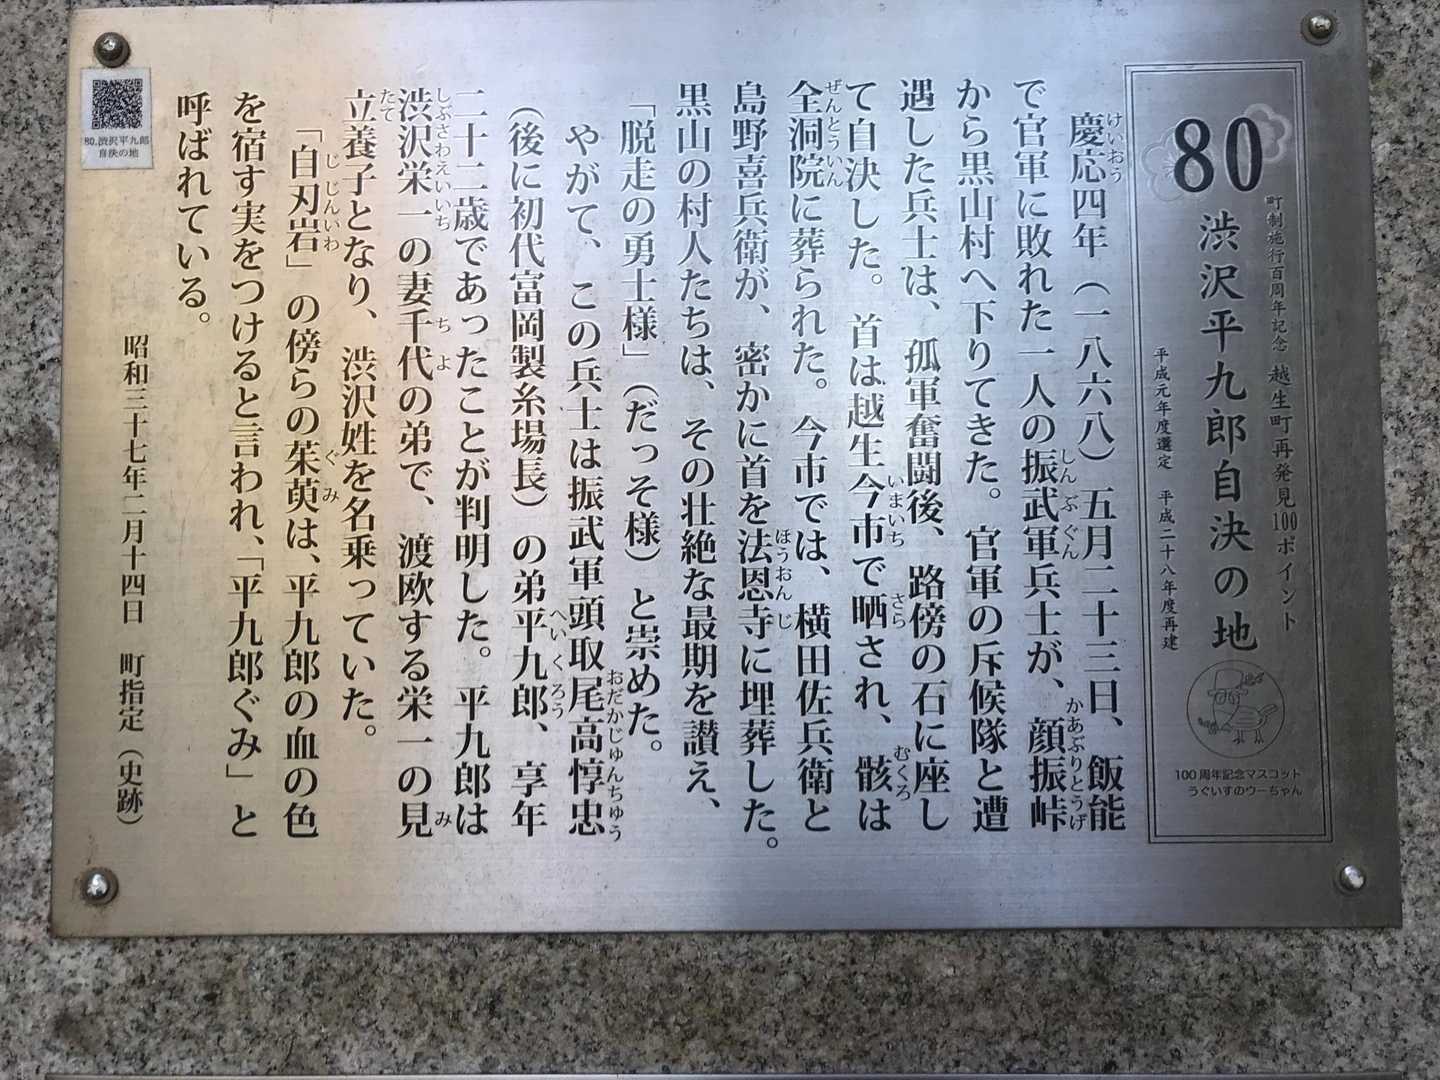 町制施行百周年記念 越生町再発見100ポイント
80 渋沢平九郎自決の地
平成元年度選定 平成二十八年度再建
100周年記念マスコット
うぐいすのウーちゃん
慶応四年(一八六八)五月二十三日、飯能
で官軍に敗れた一人の振武軍兵士が、顔振峠
から黒山村へ下りてきた。官軍の斥候隊と遭
遇した兵士は、孤軍奮闘後、路傍の石に座し
て自決した。首は越生今市で晒され、骸は
全洞院に葬られた。今市では、横田佐兵衛と
島野喜兵衛が、密かに首を法恩寺に埋葬した。
黒山の村人たちは、その壮絶な最期を讃え、
「脱走の勇士様」(だっそ様)と崇めた。
やがて、この兵士は振武軍頭取尾高惇忠
(後に初代富岡製糸場長)の弟平九郎、享年
二十二歳であったことが判明した。平九郎は
渋沢栄一の妻千代の弟で、渡欧する栄一の見
立養子となり、渋沢姓を名乗っていた。
「自刃岩」の傍らの茱萸は、平九郎の血の色
を宿す実をつけると言われ、「平九郎ぐみ」と
呼ばれている。
昭和三十七年二月十四日 町指定(史跡)
80.渋沢平九郎
自決の地